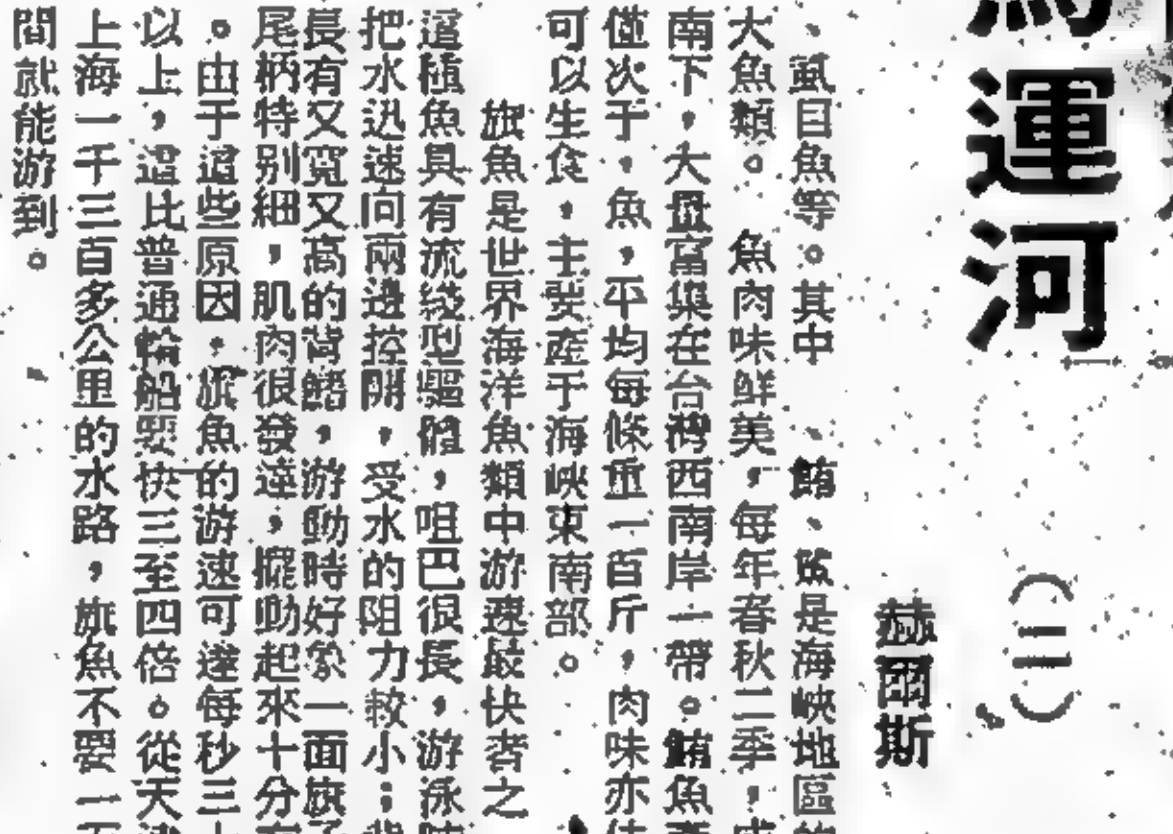 運河
(二)
赫爾斯
、虱目魚等。其中、鮪、是海峽地區
大魚類。魚肉味鮮美，每年春秋二季，
南下，大量富集在台灣西南岸一帶。鮪魚
僅次于，魚，平均每條重一百斤，肉味亦
可以生食，主要產于海峽東南部。
旗魚是世界海洋魚類中游速最快者之
這種魚具有流綫型軀體，咀巴很長，游泳
把水迅速向兩邊控開，受水的阻力較小；
長有又寬又高的背鰭，游動時好象一面旗子
尾柄特别細，肌肉很發達，擺動起來十分
。由于這些原因，旗魚的游速可達每秒三
以上，這比普通輪船要快三至四倍。從天津
上海一千三百多公里的水路，旗魚不要一
間就能游到。